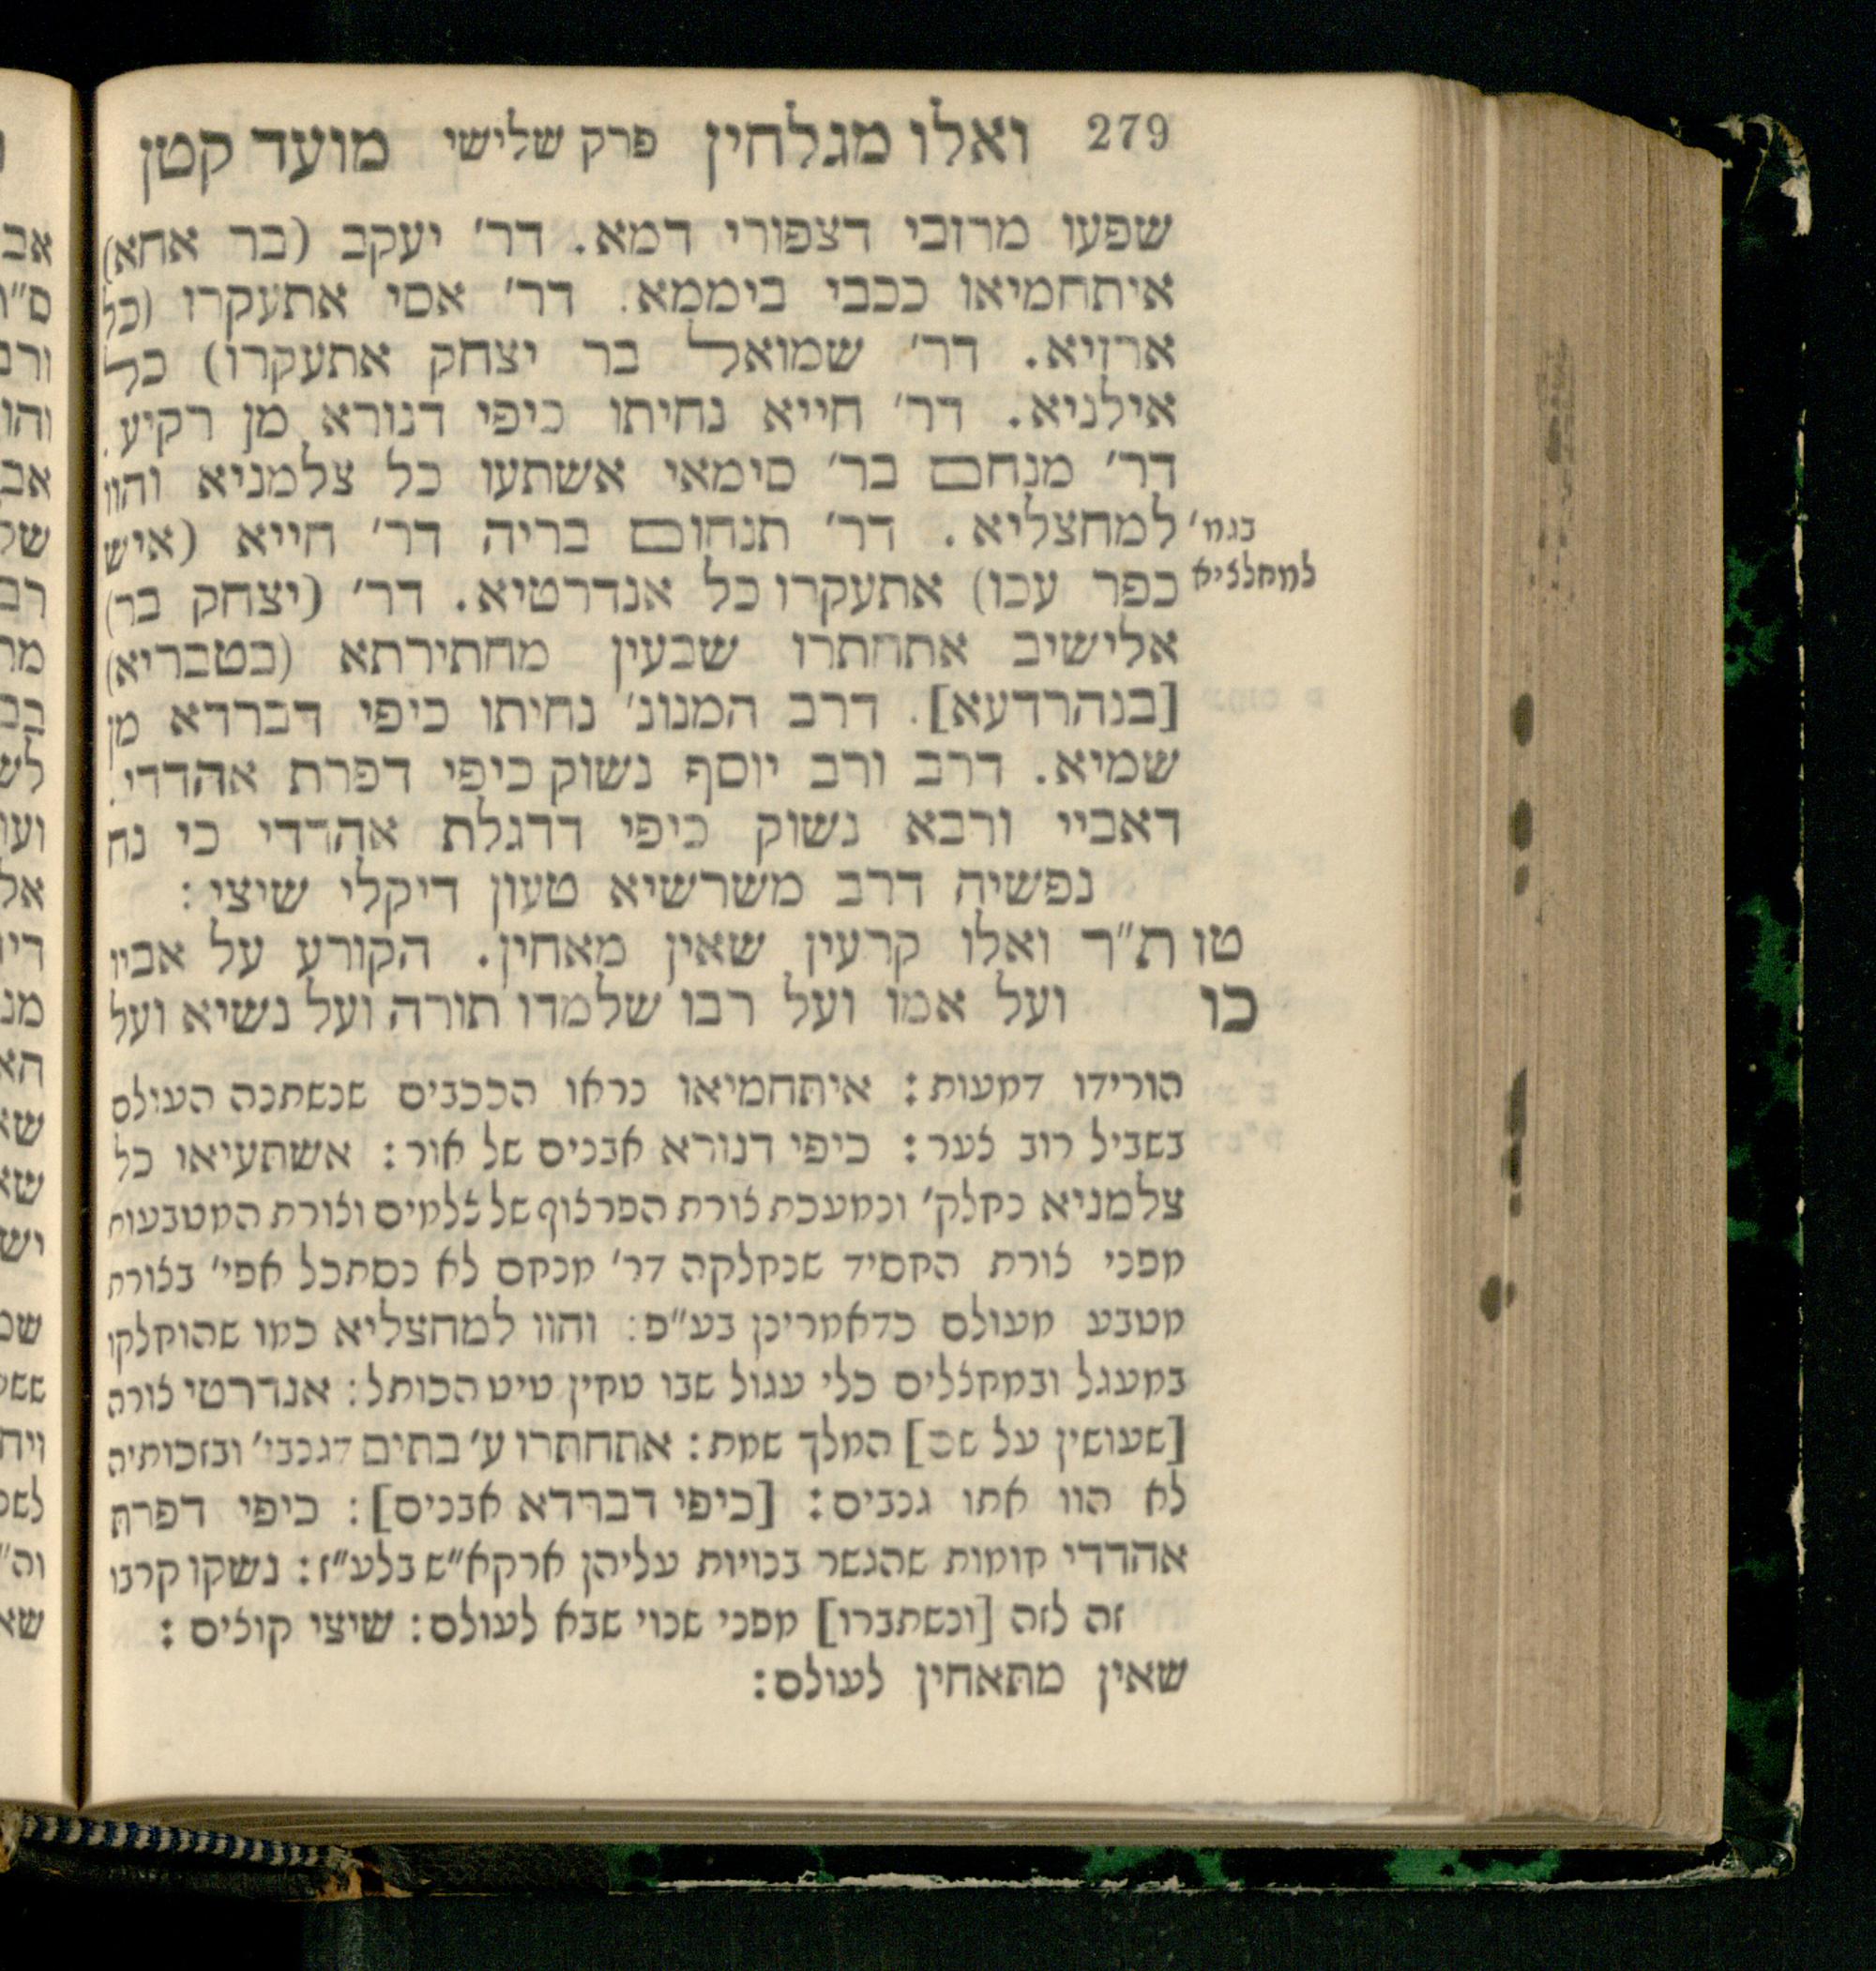 279 ואלו מגלחין פרק שלישי מועד קטן
שפעו מרזבי דצפורי דמא. דר׳ יעקב (בר אחא)
איתחמיאו ככבי ביממא. דר׳ אסי אתעקרו (כל
ארזיא. דר׳ שמואל בר יצחק אתעקרו) כל
אילניא. דר׳ חייא נחיתו כיפי דנורא מן רקיע.
דר׳ מנחם בר׳ סימאי אשתעו כל צלמניא והוו
למחצליא. דר׳ תנחום בריה דר׳ חייא (איש
בגמ׳
כפר עכו) אתעקרו כל אנדרטיא. דר׳ (יצחק בר)
למחלציא
אלישיב אתחתרו שבעין מחתירתא (בטבריא)
[בנהרדעא]. דרב המנונ׳ נחיתו כיפי דברדא מן
שמיא. דרב ורב יוסף נשוק כיפי דפרת אהדדי.
דאביי ורבא נשוק כיפי דדגלת אהדדי כי נח
נפשיה דרב משרשיא טעון דיקלי שיצי:
טו ת״ר ואלו קרעין שאין מאחין. הקורע על אביו
כו ועל אמו ועל רבו שלמדו תורה ועל נשיא ועל
הורידו דמעות: איתחמיאו נראו הככבים שנשתנה העולם
בשביל רוב צער: כיפי דנורא אבנים של אור: אשתעיאו כל
צלמניא נחלק׳ ונמעכת צורת הפרצוף של צלמים וצורת המטבעות
מפני צורת החסיד שנחלקה דר׳ מנחם לא נסתכל אפי׳ בצורת
מטבע מעולם כדאמרינן בע״פ: והוו למחצליא כמו שהוחלקו
במעגל ובמחצלים כלי עגול שבו טחין טיט הכותל: אנדרטי צורה
[שעושין על שם] המלך שמת: אתחתרו ע׳ בתים דגנבי׳ ובזכותיה
לא הוו אתו גנבים: [כיפי דברדא אבנים]: כיפי דפרת
אהדדי חומות שהגשר בנויות עליהן ארקא״ש בלע״ז: נשקו קרבו
זה לזה [ונשתברו] מפני שנוי שבא לעולם: שיצי קוצים:
שאין מתאחין לעולם: